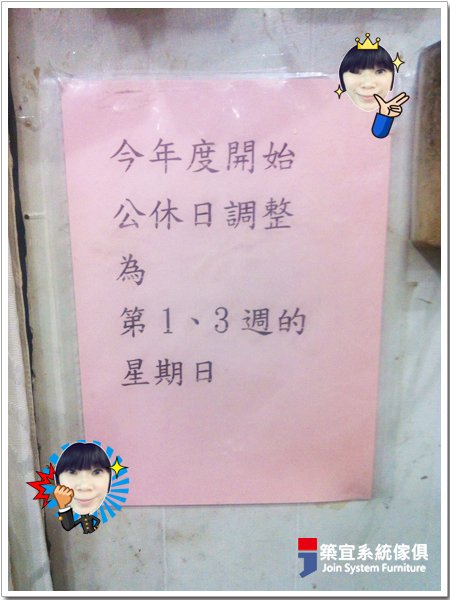 今年度開始
公休日調整
為
第1、3週的
星期日
築宜系統傢俱
Join System Furniture